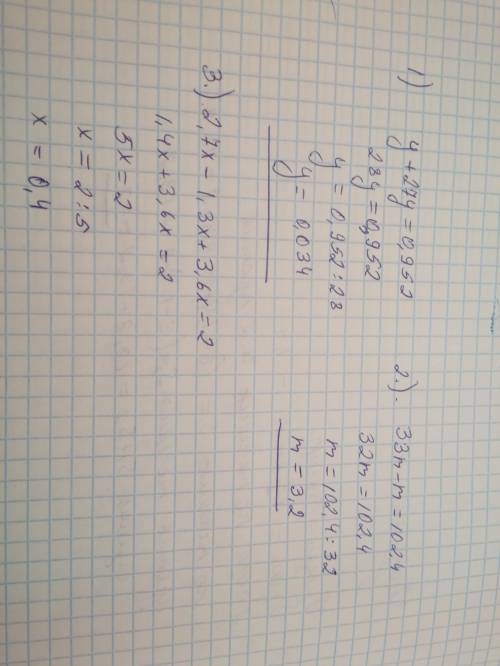 1) y + 27y = 0,952
28y = 0,952
y = 0,952 : 28
y = 0,034
2.). 33m - m = 102,4
32m = 102,4
m = 102,4 : 32
m = 3,2
3.) 2,7x - 1,3x + 3,6x = 2
1,4x + 3,6x = 2
5x = 2
x = 2 : 5
x = 0,4